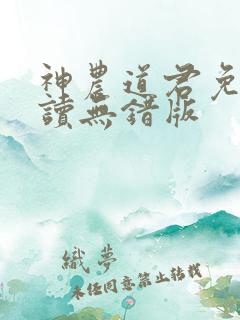 神農道君免
讀無錯版
織夢
未經同意禁止轉載